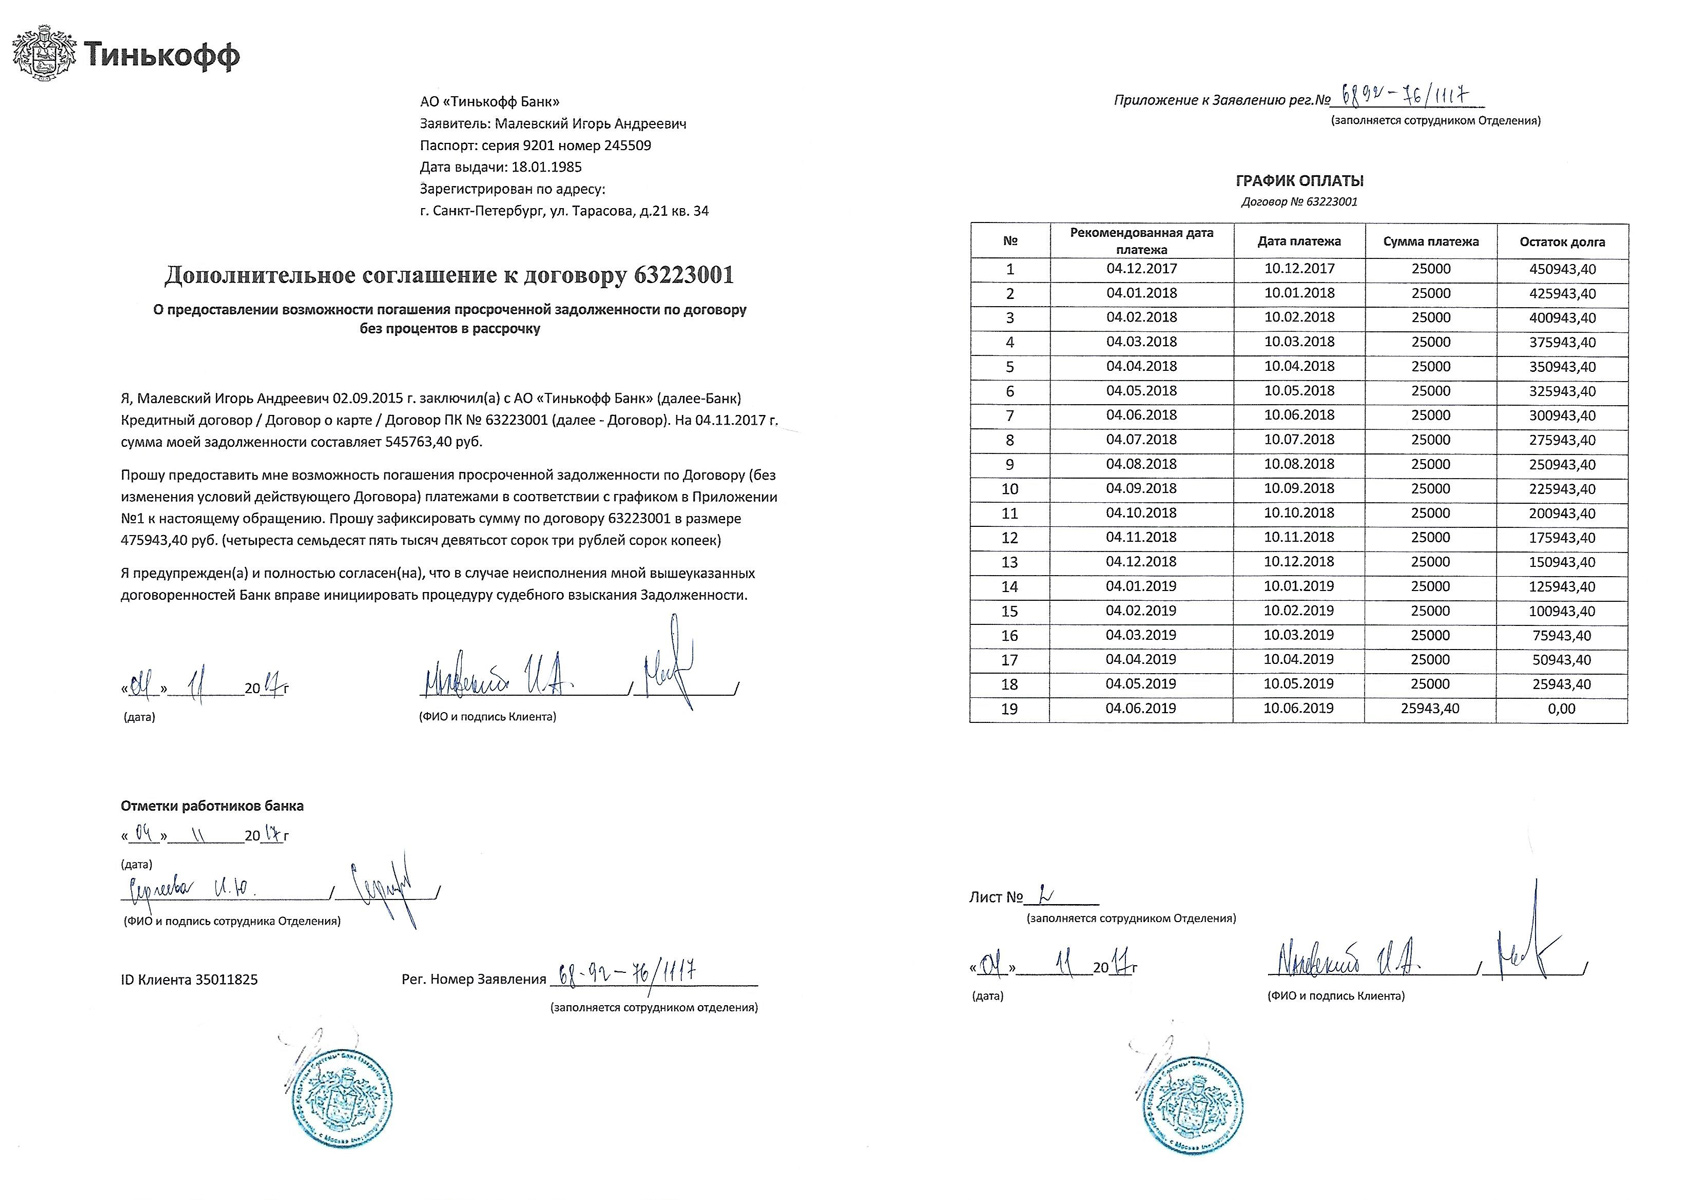 Тинькофф
АО «Тинькофф Банк»
Заявитель: Малевский Игорь Андреевич
Паспорт: серия 9201 номер 245509
Дата выдачи: 18.01.1985
Зарегистрирован по адресу:
г. Санкт-Петербург, ул. Тарасова, д.21 кв. 34
Дополнительное соглашение к договору 63223001
О предоставлении возможности погашения просроченной задолженности по договору
без процентов в рассрочку
Я, Малевский Игорь Андреевич 02.09.2015 г. заключил(а) с АО «Тинькофф Банк» (далее-Банк)
Кредитный договор / Договор о карте / Договор ПК № 63223001 (далее - Договор). На 04.11.2017 г.
сумма моей задолженности составляет 545763,40 руб.
Прошу предоставить мне возможность погашения просроченной задолженности по Договору (без
изменения условий действующего Договора) платежами в соответствии с графиком в Приложении
№1 к настоящему обращению. Прошу зафиксировать сумму по договору 63223001 в размере
475943,40 руб. (четыреста семьдесят пять тысяч девятьсот сорок три рублей сорок копеек)
Я предупрежден(а) и полностью согласен(на), что в случае неисполнения мной вышеуказанных
договоренностей Банк вправе инициировать процедуру судебного взыскания Задолженности.
«04» 11 2017г Малевский И.А. / /
(дата) (ФИО и подпись Клиента)
Отметки работников банка
«04» 11 2017г
(дата)
Сергеева И.Ю. / /
(ФИО и подпись сотрудника Отделения)
ID Клиента 35011825 Рег. Номер Заявления 68-92-76/1117
(заполняется сотрудником отделения)
Приложение к Заявлению рег.№ 6892-76/1117
(заполняется сотрудником Отделения)
ГРАФИК ОПЛАТЫ
Договор № 63223001
№ Рекомендованная дата платежа Дата платежа Сумма платежа Остаток долга
1 04.12.2017 10.12.2017 25000 450943,40
2 04.01.2018 10.01.2018 25000 425943,40
3 04.02.2018 10.02.2018 25000 400943,40
4 04.03.2018 10.03.2018 25000 375943,40
5 04.04.2018 10.04.2018 25000 350943,40
6 04.05.2018 10.05.2018 25000 325943,40
7 04.06.2018 10.06.2018 25000 300943,40
8 04.07.2018 10.07.2018 25000 275943,40
9 04.08.2018 10.08.2018 25000 250943,40
10 04.09.2018 10.09.2018 25000 225943,40
11 04.10.2018 10.10.2018 25000 200943,40
12 04.11.2018 10.11.2018 25000 175943,40
13 04.12.2018 10.12.2018 25000 150943,40
14 04.01.2019 10.01.2019 25000 125943,40
15 04.02.2019 10.02.2019 25000 100943,40
16 04.03.2019 10.03.2019 25000 75943,40
17 04.04.2019 10.04.2019 25000 50943,40
18 04.05.2019 10.05.2019 25000 25943,40
19 04.06.2019 10.06.2019 25943,40 0,00
Лист № 2
(заполняется сотрудником Отделения)
«04» 11 2017г Малевский И.А. / /
(дата) (ФИО и подпись Клиента)